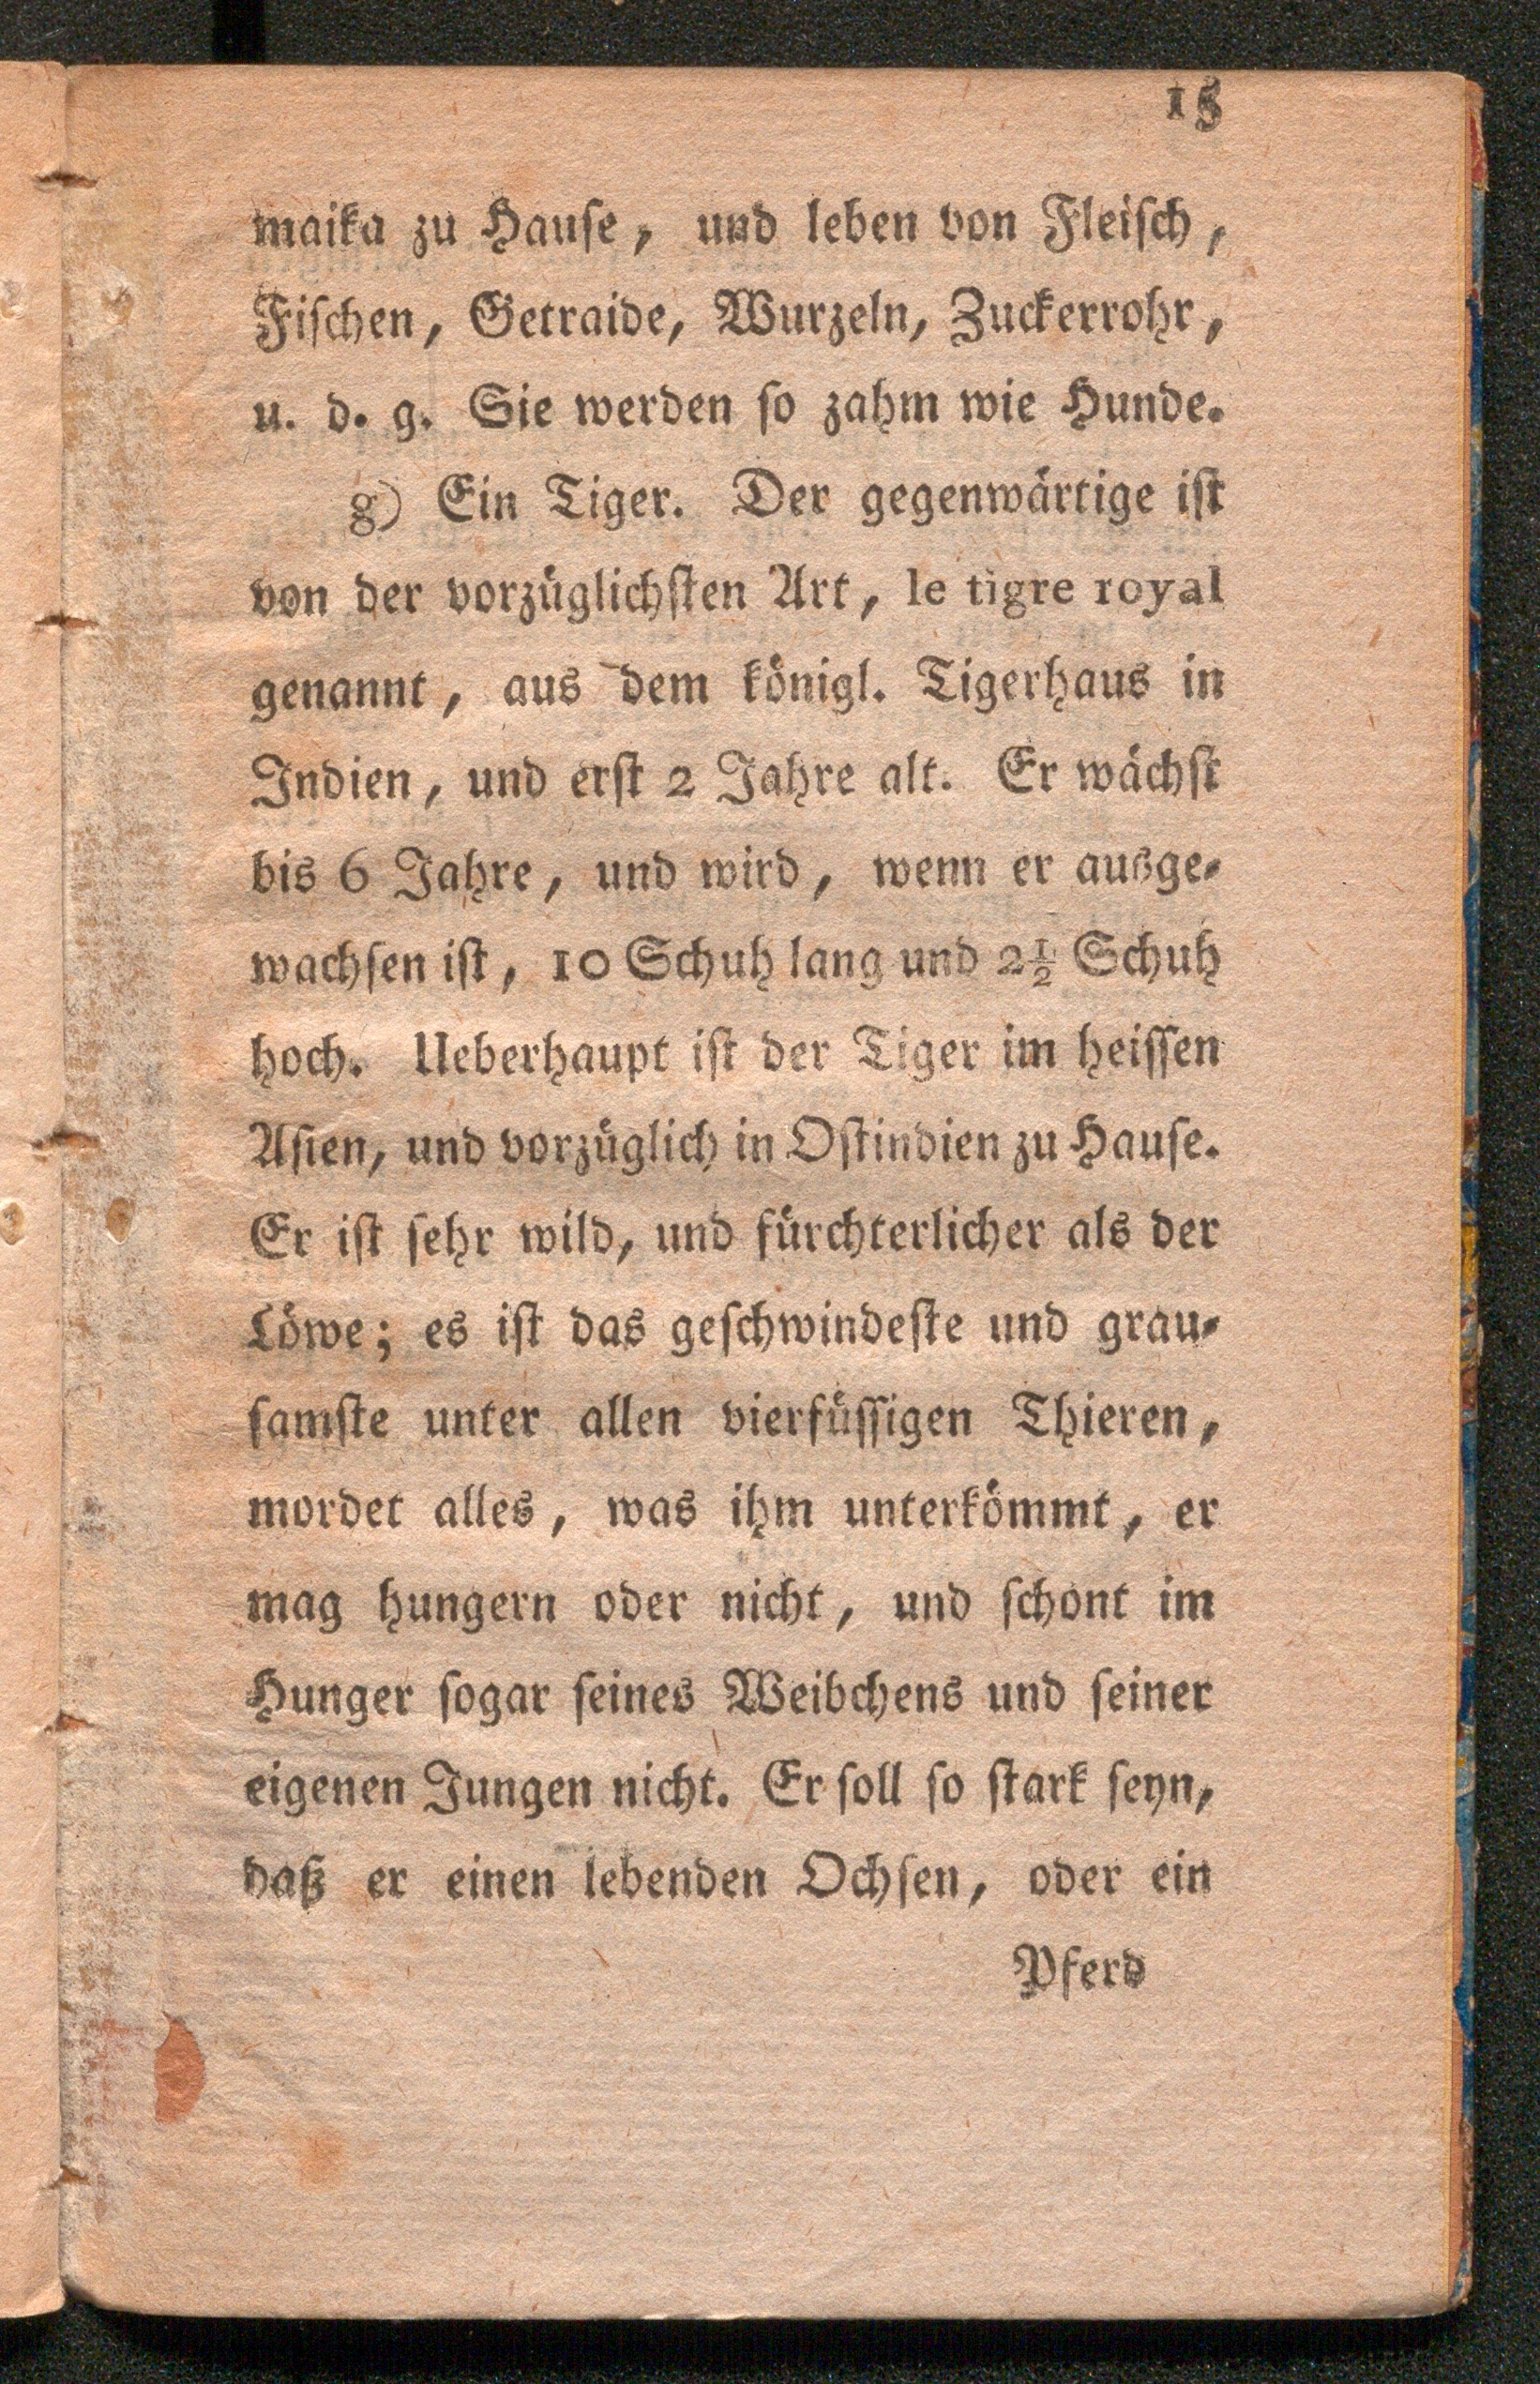 15
maika zu Hauſe, und leben von Fleiſch,
Fiſchen, Getraide, Wurzeln, Zuckerrohr,
u. d. g. Sie werden ſo zahm wie Hunde.
g) Ein Tiger. Der gegenwärtige iſt
von der vorzüglichſten Art, le tigre royal
genannt, aus dem königl. Tigerhaus in
Indien, und erſt 2 Jahre alt. Er wächſt
bis 6 Jahre, und wird, wenn er ausge-
wachſen iſt, 10 Schuh lang und 2½ Schuh
hoch. Ueberhaupt iſt der Tiger im heiſſen
Aſien, und vorzüglich in Oſtindien zu Hauſe.
Er iſt ſehr wild, und fürchterlicher als der
Löwe; es iſt das geſchwindeſte und grau-
ſamſte unter allen vierfüſſigen Thieren,
mordet alles, was ihm unterkömmt, er
mag hungern oder nicht, und ſchont im
Hunger ſogar ſeines Weibchens und ſeiner
eigenen Jungen nicht. Er ſoll ſo ſtark ſeyn,
daß er einen lebenden Ochſen, oder ein
Pferd